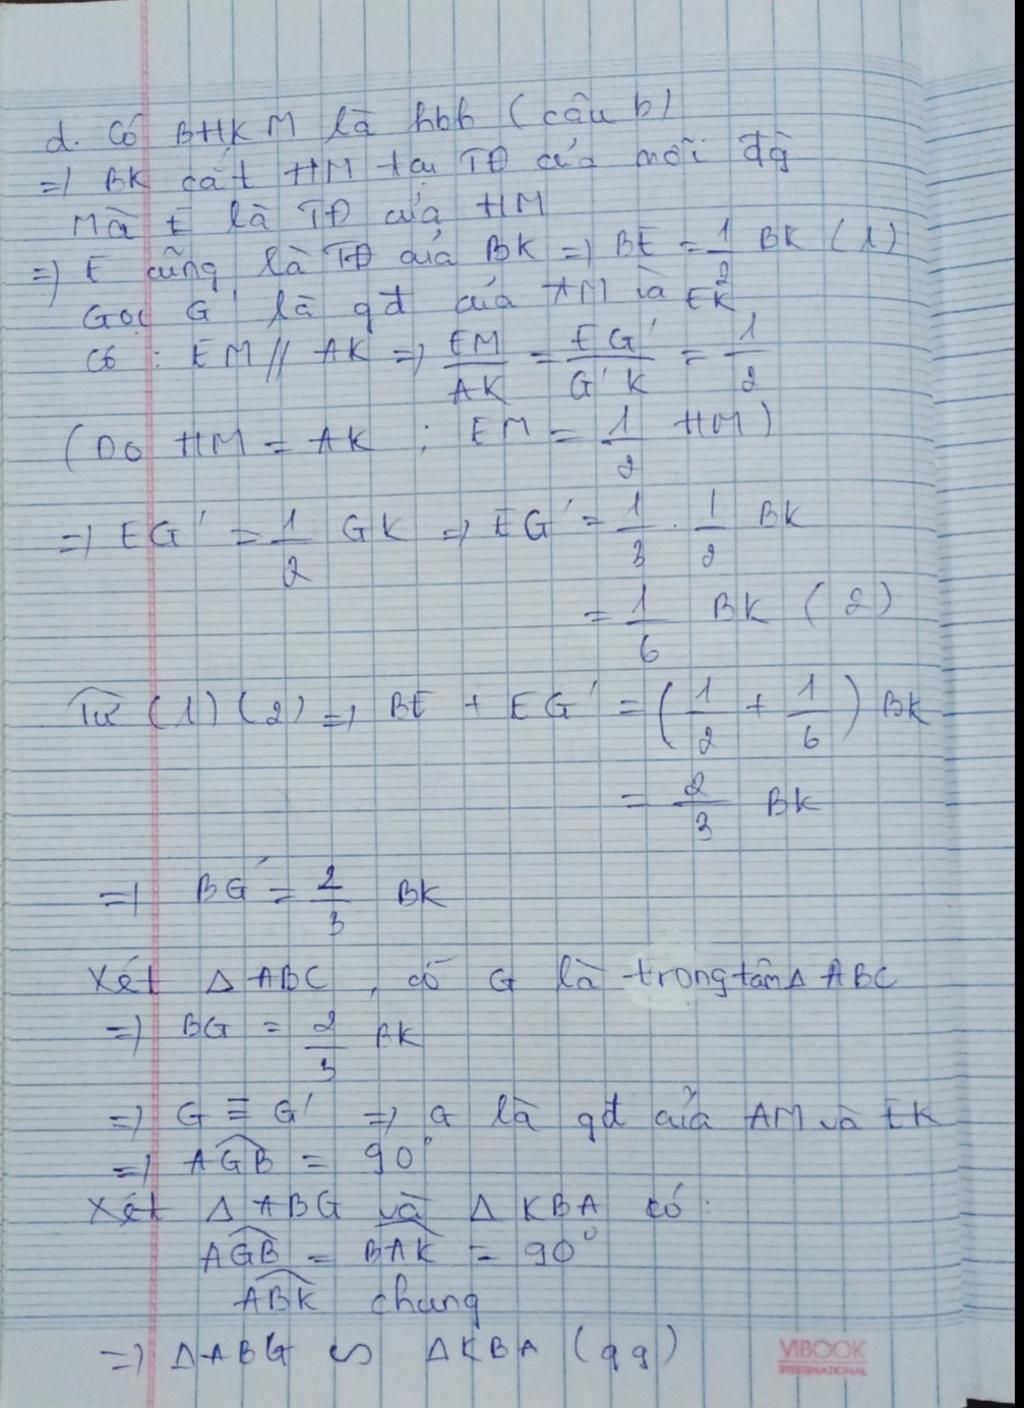 d. Có BHKM là hbh (câu b)
=> BK cắt HM tại TĐ của mỗi đg
Mà E là TĐ của HM
=> E cũng là TĐ của BK => BE = 1/2 BK (1)
Gọi G' là gđ của AM và EK
Có : EM // AK => EM/AK = EG'/G'K = 1/2
(Do HM = AK ; EM = 1/2 HM)
=> EG' = 1/2 GK => EG' = 1/3 . 1/2 BK
= 1/6 BK (2)
Từ (1) (2) => BE + EG' = (1/2 + 1/6) BK
= 2/3 BK
=> BG' = 2/3 BK
Xét Δ ABC , có G là trong tâm Δ ABC
=> BG = 2/3 BK
=> G ≡ G' => G là gđ của AM và EK
=> AGB = 90°
Xét Δ ABG và Δ KBA có :
AGB = BAK = 90°
ABK chung
=> Δ ABG ∽ Δ KBA (gg)
VIBOOK
INTERNATIONAL